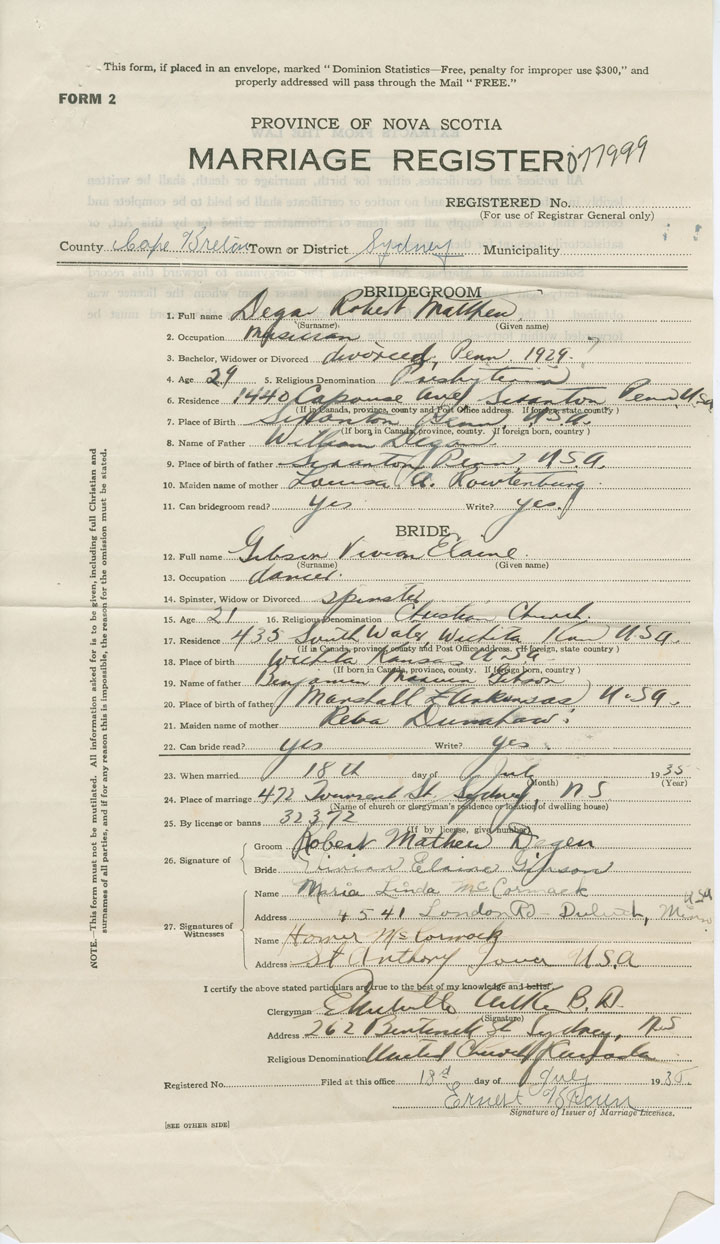 This form, if placed in an envelope, marked "Dominion Statistics—Free, penalty for improper use $300," and
properly addressed will pass through the Mail "FREE."
FORM 2
PROVINCE OF NOVA SCOTIA
MARRIAGE REGISTER 077999
REGISTERED No.
(For use of Registrar General only)
County Cape Breton Town or District Sydney Municipality
BRIDEGROOM
1. Full name Robert Matthew
(Surname) (Given name)
2. Occupation Musician
3. Bachelor, Widower or Divorced divorced, Penn 1929 ?
4. Age 29 5. Religious Denomination
6. Residence 1440 Capouse Ave Penn U.S.A
(If in Canada, province, county and Post Office address. If foreign, state country)
7. Place of Birth Scranton Penn, U.S.A.
(If born in Canada, province, county. If foreign born, country)
8. Name of Father William Degan
9. Place of birth of father Scranton, Penn, U.S.A.
10. Maiden name of mother Louisa A.
11. Can bridegroom read? yes Write? yes.
BRIDE
12. Full name Gibson Vivian Elaine
(Surname) (Given name)
13. Occupation dancer.
14. Spinster, Widow or Divorced spinster
15. Age 21 16. Religious Denomination Christian Church.
17. Residence 435 South Water, Wichita Kan U.S.A
(If in Canada, province, county and Post Office address. If foreign, state country)
18. Place of birth Wichita Kansas U.S.A
(If born in Canada, province, county. If foreign born, country)
19. Name of father Benjamin Marvin Gibson
20. Place of birth of father Marshall Arkansas U.S.A.
21. Maiden name of mother Reba
22. Can bride read? yes Write? yes.
23. When married 18th day of July 1935
(Month) (Year)
24. Place of marriage 472 Townsend St. Sydney, N S
(Name of church or clergyman's residence or location of dwelling house)
25. By license or banns 32372
(If by license, give number)
26. Signature of
Groom Robert Mathew Degen
Bride Vivian Elaine Gipson
27. Signatures of Witnesses
Name Maria Linda McCormack
Address 4541 London Rd - Duluth, Minn. USA
Name Homer McCormack
Address St Anthony Iowa U.S.A
I certify the above stated particulars are true to the best of my knowledge and belief.
Clergyman B. D.
(Signature)
Address 262 Bentinck St Sydney, N S
Religious Denomination United Church Canada
Registered No. Filed at this office 13th day of July 1935.
Ernest
Signature of Issuer of Marriage Licenses.
[SEE OTHER SIDE]
NOTE.—This form must not be mutilated. All information asked for is to be given, including full Christian and
surnames of all parties, and if for any reason this is impossible, the reason for the omission must be stated.